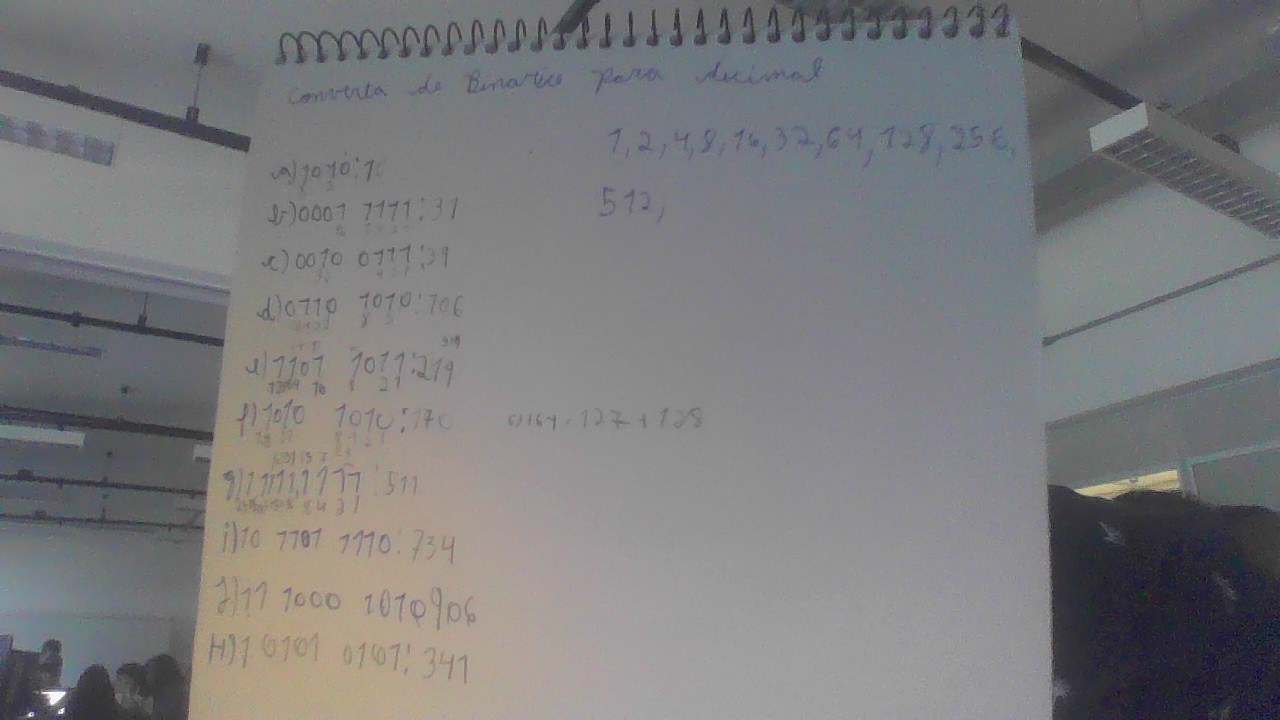 Converta de Binario para decimal
1, 2, 4, 8, 16, 32, 64, 128, 256,
512,
a) 1010: 10
b) 0001 1111: 31
c) 0010 0111: 39
d) 0110 1010: 106
e) 1101 1011: 219
f) 1010 1010: 170
127 + 128
g) 1 1111 1111: 511
i) 10 1101 1110: 734
J) 11 1000 1010 906
H) 1 0101 0101: 341